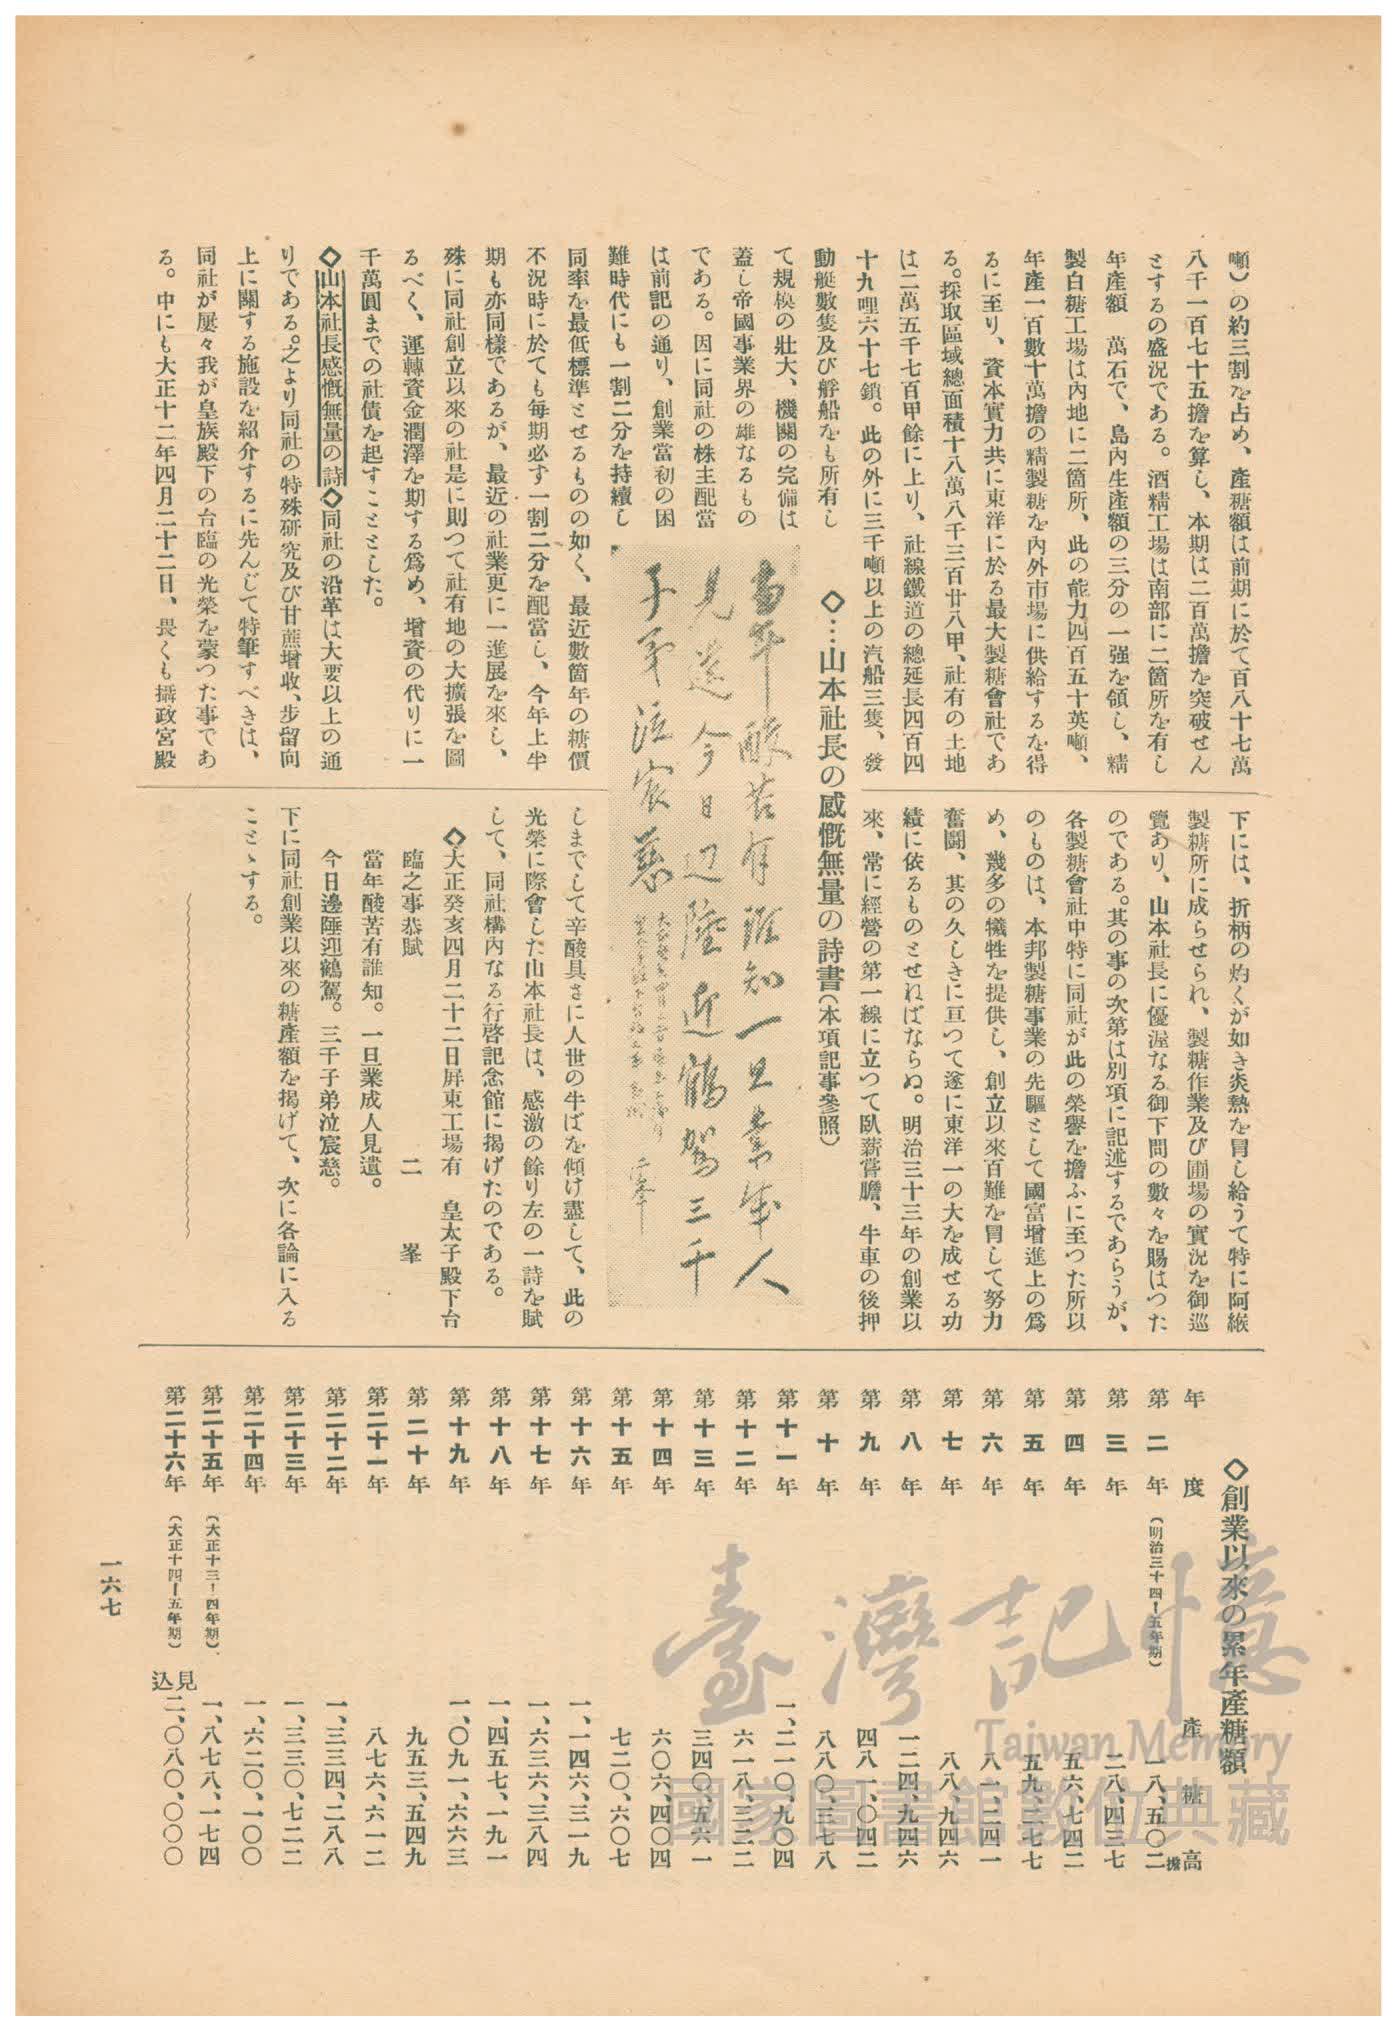 噸)の約三割を占め、產糖額は前期に於て百八十七萬
八千一百七十五擔を算し、本期は二百萬擔を突破せん
とするの盛況である。酒精工場は南部に二箇所を有し
年產額　萬石で、島內生產額の三分の一强を領し、精
製白糖工場は內地に二箇所、此の能力四百五十英噸、
年產一百數十萬擔の精製糖を內外市場に供給するを得
るに至り、資本實力共に東洋に於る最大製糖會社であ
る。採取區域總面積十八萬八千三百廿八甲、社有の土地
は二萬五千七百甲餘に上り、社線鐵道の總延長四百四
十九哩六十七鎖。此の外に三千噸以上の汽船三隻、發
動艇數隻及び艀船をも所有し
て規模の壯大、機關の完備は
蓋し帝國事業界の雄なるもの
である。因に同社の株主配當
は前記の通り、創業當初の困
難時代にも一割二分を持續し
同率を最低標準とせるものの如く、最近數箇年の糖價
不況時に於ても每期必ず一割二分を配當し、今年上半
期も亦同樣であるが、最近の社業更に一進展を來し、
殊に同社創立以來の社是に則つて社有地の大擴張を圖
るべく、運轉資金潤澤を期する爲め、增資の代りに一
千萬圓までの社債を起すこととした。
◇山本社長感慨無量の詩◇同社の沿革は大要以上の通
りである。之より同社の特殊硏究及び甘蔗增收、步留向
上に關する施設を紹介するに先んじて特筆すべきは、
同社が屢々我が皇族殿下の台臨の光榮を蒙つた事であ
る。中にも大正十二年四月二十二日、畏くも攝政宮殿
◇…山本社長の感慨無量の詩書(本項記事參照)
當年酸苦有誰知一旦業成人
見遺今日辺陲迎鶴駕三千
子弟泣宸慈
下には、折柄の灼くが如き炎熱を冒し給うて特に阿緱
製糖所に成らせられ、製糖作業及び圃場の實況を御巡
覽あり、山本社長に優渥なる御下問の數々を賜はつた
のである。其の事の次第は別項に記述するであらうが、
各製糖會社中特に同社が此の榮譽を擔ふに至つた所以
のものは、本邦製糖事業の先驅として國富增進上の爲
め、幾多の犧牲を提供し、創立以來百難を冒して努力
奮鬪、其の久しきに亘つて遂に東洋一の大を成せる功
績に依るものとせねばならぬ。明治三十三年の創業以
來、常に經營の第一線に立つて臥薪嘗膽、牛車の後押
しまでして辛酸具さに人世の半ばを傾け盡して、此の
光榮に際會した山本社長は、感激の餘り左の一詩を賦
して、同社構內なる行啓記念館に揭げたのである。
◇大正癸亥四月二十二日屏東工場有　皇太子殿下台
臨之事恭賦　二　峯
當年酸苦有誰知。一旦業成人見遺。
今日邊陲迎鶴駕。三千子弟泣宸慈。
下に同社創業以來の糖產額を揭げて、次に各論に入る
ことゝする。
◇創業以來の累年產糖額
年　度　產　糖　高
第二年(明治三十四ー五年期)　一八、五〇二擔
第三年　二八、四三七
第四年　五六、七四二
第五年　五九、二七七
第六年　八一、二四一
第七年　八八、九四六
第八年　一二四、九四六
第九年　四八一、〇四二
第十年　八八〇、三七八
第十一年　一、二一〇、九〇四
第十二年　六一八、三二二
第十三年　三四〇、五六一
第十四年　六〇六、四〇四
第十五年　七二〇、六〇七
第十六年　一、一四六、三一九
第十七年　一、六三六、三八四
第十八年　一、四五七、一九一
第十九年　一、〇九一、六六三
第二十年　九五三、五四九
第二十一年　八七六、六一二
第二十二年　一、三三四、二八八
第二十三年　一、三三〇、七二二
第二十四年　一、六二〇、一〇〇
第二十五年(大正十三ー四年期)　一、八七八、一七四
第二十六年(大正十四ー五年期)　見込　二、〇八〇、〇〇〇
一六七
臺灣記憶
Taiwan Memory
國家圖書館數位典藏